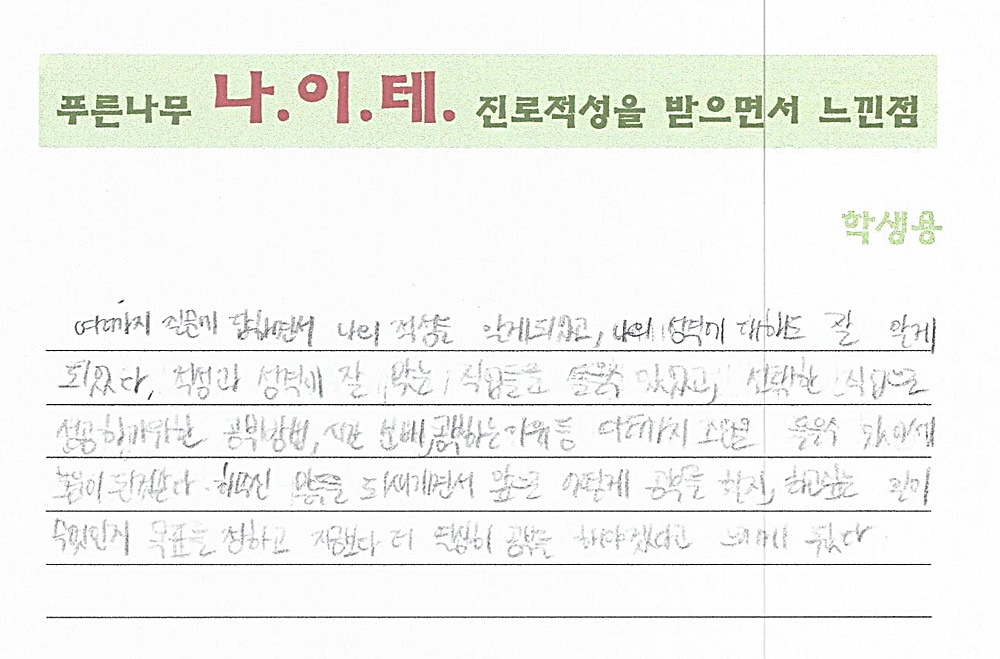 푸른나무 나.이.테. 진로적성을 받으면서 느낀점
학생용
여러가지 질문에 답하면서 나의 적성을 알게되었고, 나의 성격에 대해도 잘 알게
되었다. 적성과 성격에 잘 맞는 직업들을 들을수 있었고, 선택한 직업으로
성공하기위한 공부방법, 시간 분배, 공부하는 이유등 여러가지 조언을 들을수 있어서
도움이 된것같다. 해주신 말들을 되새기면서 앞으로 어떻게 공부를 할지, 하고싶은 일이
무엇인지 목표를 정하고 지금보다 더 열심히 공부를 해야겠다고 느끼게 됬다.